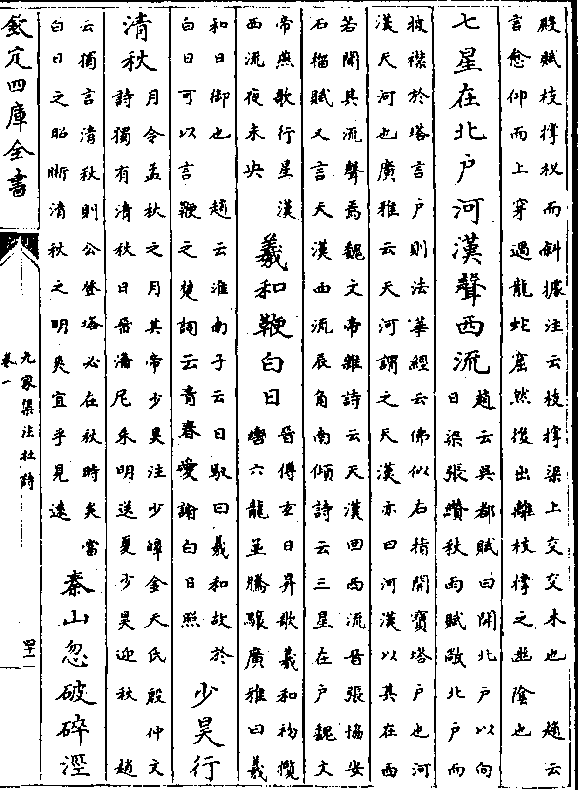 殿賦枝撑杈而斜據注云枝撑梁上交交木也 趙云
言愈仰而上穿過龍蛇窟然後出離枝撑之幽陰也
七星在北户河漢聲西流
趙云吳都賦曰開北户以向
日梁張纘秋雨賦敞北户而
披襟於塔言户則法華經云佛似右指開寶塔户也河
漢天河也廣雅云天河謂之天漢亦曰河漢以其在西
若聞其流聲焉魏文帝雜詩云天漢囬西流晉張恊安
石榴賦又言天漢西流辰角南傾詩云三星在户魏文
帝燕歌行星漢
西流夜未央
羲和鞭白日
晉傅玄日昇歌羲和初攬
轡六龍並騰驤廣雅曰羲
和日御也 趙云淮南子云日馭曰羲和故於
白日可以言鞭之楚詞云青春受謝白日照
少昊行
清秋
月令孟秋之月其帝少昊注少皥金天氏殷仲文
詩獨有清秋日晉潘尼朱明送夏少昊迎秋 趙
云獨言清秋則公登塔必在秋時矣當
白日之昭晰清秋之明爽宜乎見遠
秦山忽破碎涇
欽定四庫全書
九家集注杜詩
卷一